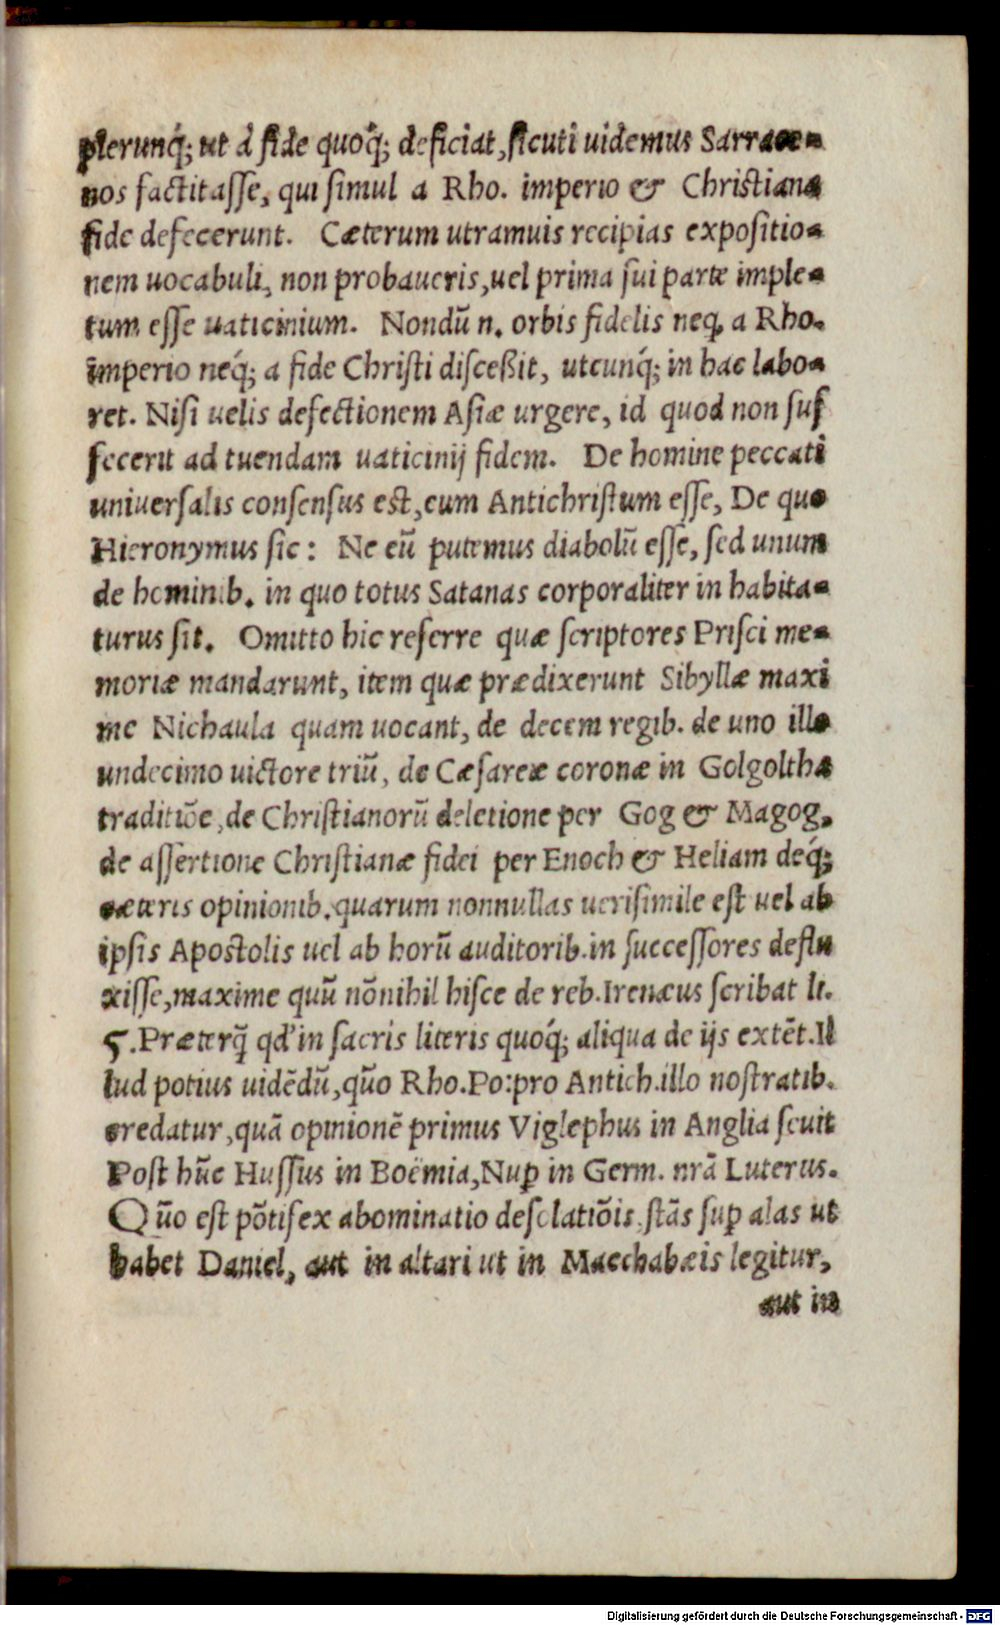 plerunq́; ut à fide quoq́; deficiat, ſicuti uidemus Sarrace-
nos factitaſſe, qui ſimul a Rho. imperio & Chriſtiana
fide defecerunt. Cæterum utramuis recipias expoſitio-
nem uocabuli, non probaueris, uel prima ſui parte imple-
tum eſſe uaticinium. Nondū n. orbis fidelis neq̄ a Rho.
imperio neq́; a fide Chriſti diſceßit, utcunq́; in hac labo-
ret. Niſi uelis defectionem Aſiæ urgere, id quod non ſuf
fecerit ad tuendam uaticinij fidem. De homine peccati
uniuerſalis conſenſus eſt, eum Antichriſtum eſſe, De quo
Hieronymus ſic: Ne eū putemus diabolū eſſe, ſed unum
de hominib. in quo totus Satanas corporaliter in habita-
turus ſit. Omitto hic referre quæ ſcriptores Priſci me-
moriæ mandarunt, item quæ prædixerunt Sibyllæ maxi
me Nichaula quam uocant, de decem regib. de uno illo
undecimo uictore triū, de Cæſareæ coronæ in Golgoltha
traditiōe, de Chriſtianorū deletione per Gog & Magog,
de aſſertione Chriſtianæ fidei per Enoch & Heliam deq́;
cæteris opinionib. quarum nonnullas ueriſimile eſt uel ab
ipſis Apoſtolis uel ab horū auditorib. in ſucceſſores deflu
xiſſe, maxime quū nōnihil hiſce de reb. Irenæus ſcribat li.
5. Præterq̄ qd' in ſacris literis quoq́; aliqua de ijs extēt. Il
lud potius uidēdū, quō Rho. Po: pro Antich. illo noſtratib.
credatur, quā opinionē primus Viglephus in Anglia ſeuit
Poſt hūc Huſſus in Boëmia, Nuꝑ in Germ. nrā Luterus.
Quō eſt pōtifex abominatio deſolatiōis, ſtās ſuꝑ alas ut
habet Daniel, aut in altari ut in Macchabæis legitur,
aut in
Digitalisierung gefördert durch die Deutsche Forschungsgemeinschaft - DFG